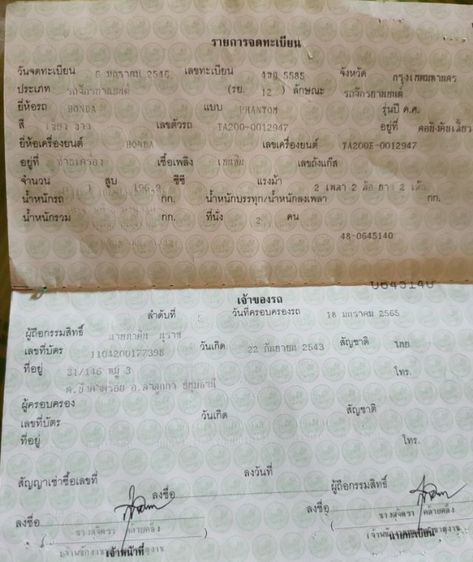 รายการจดทะเบียน
วันจดทะเบียน 6 มกราคม 2546 เลขทะเบียน 5585 จังหวัด กรุงเทพมหานคร
ประเภท รถจักรยานยนต์ (รย. 12 ) ลักษณะ รถจักรยานยนต์
ยี่ห้อรถ HONDA แบบ PHANTOM รุ่นปี ค.ศ.
สี เลขตัวรถ TA200-0012947 อยู่ที่
ยี่ห้อเครื่องยนต์ HONDA เลขเครื่องยนต์ TA200E-0012947
อยู่ที่ เชื้อเพลิง เลขถังแก๊ส
จำนวน 1 สูบ ซีซี แรงม้า 2 เพลา 2 ล้อ ยาง 2 เส้น
น้ำหนักรถ กก. น้ำหนักบรรทุก/น้ำหนักลงเพลา กก.
น้ำหนักรวม กก. ที่นั่ง 2 คน
48-0645140
0645140
เจ้าของรถ
ลำดับที่ วันที่ครอบครองรถ 18 มกราคม 2565
ผู้ถือกรรมสิทธิ์
เลขที่บัตร 1104200177398 วันเกิด 22 กันยายน 2543 สัญชาติ ไทย
ที่อยู่ 31/146 หมู่ 3 โทร.
อ.ลำลูกกา
ผู้ครอบครอง
เลขที่บัตร วันเกิด สัญชาติ
ที่อยู่ โทร.
สัญญาเช่าซื้อเลขที่ ลงวันที่ ผู้ถือกรรมสิทธิ์
ลงชื่อ ลงชื่อ
ลงชื่อ
เจ้าหน้าที่ นายทะเบียน